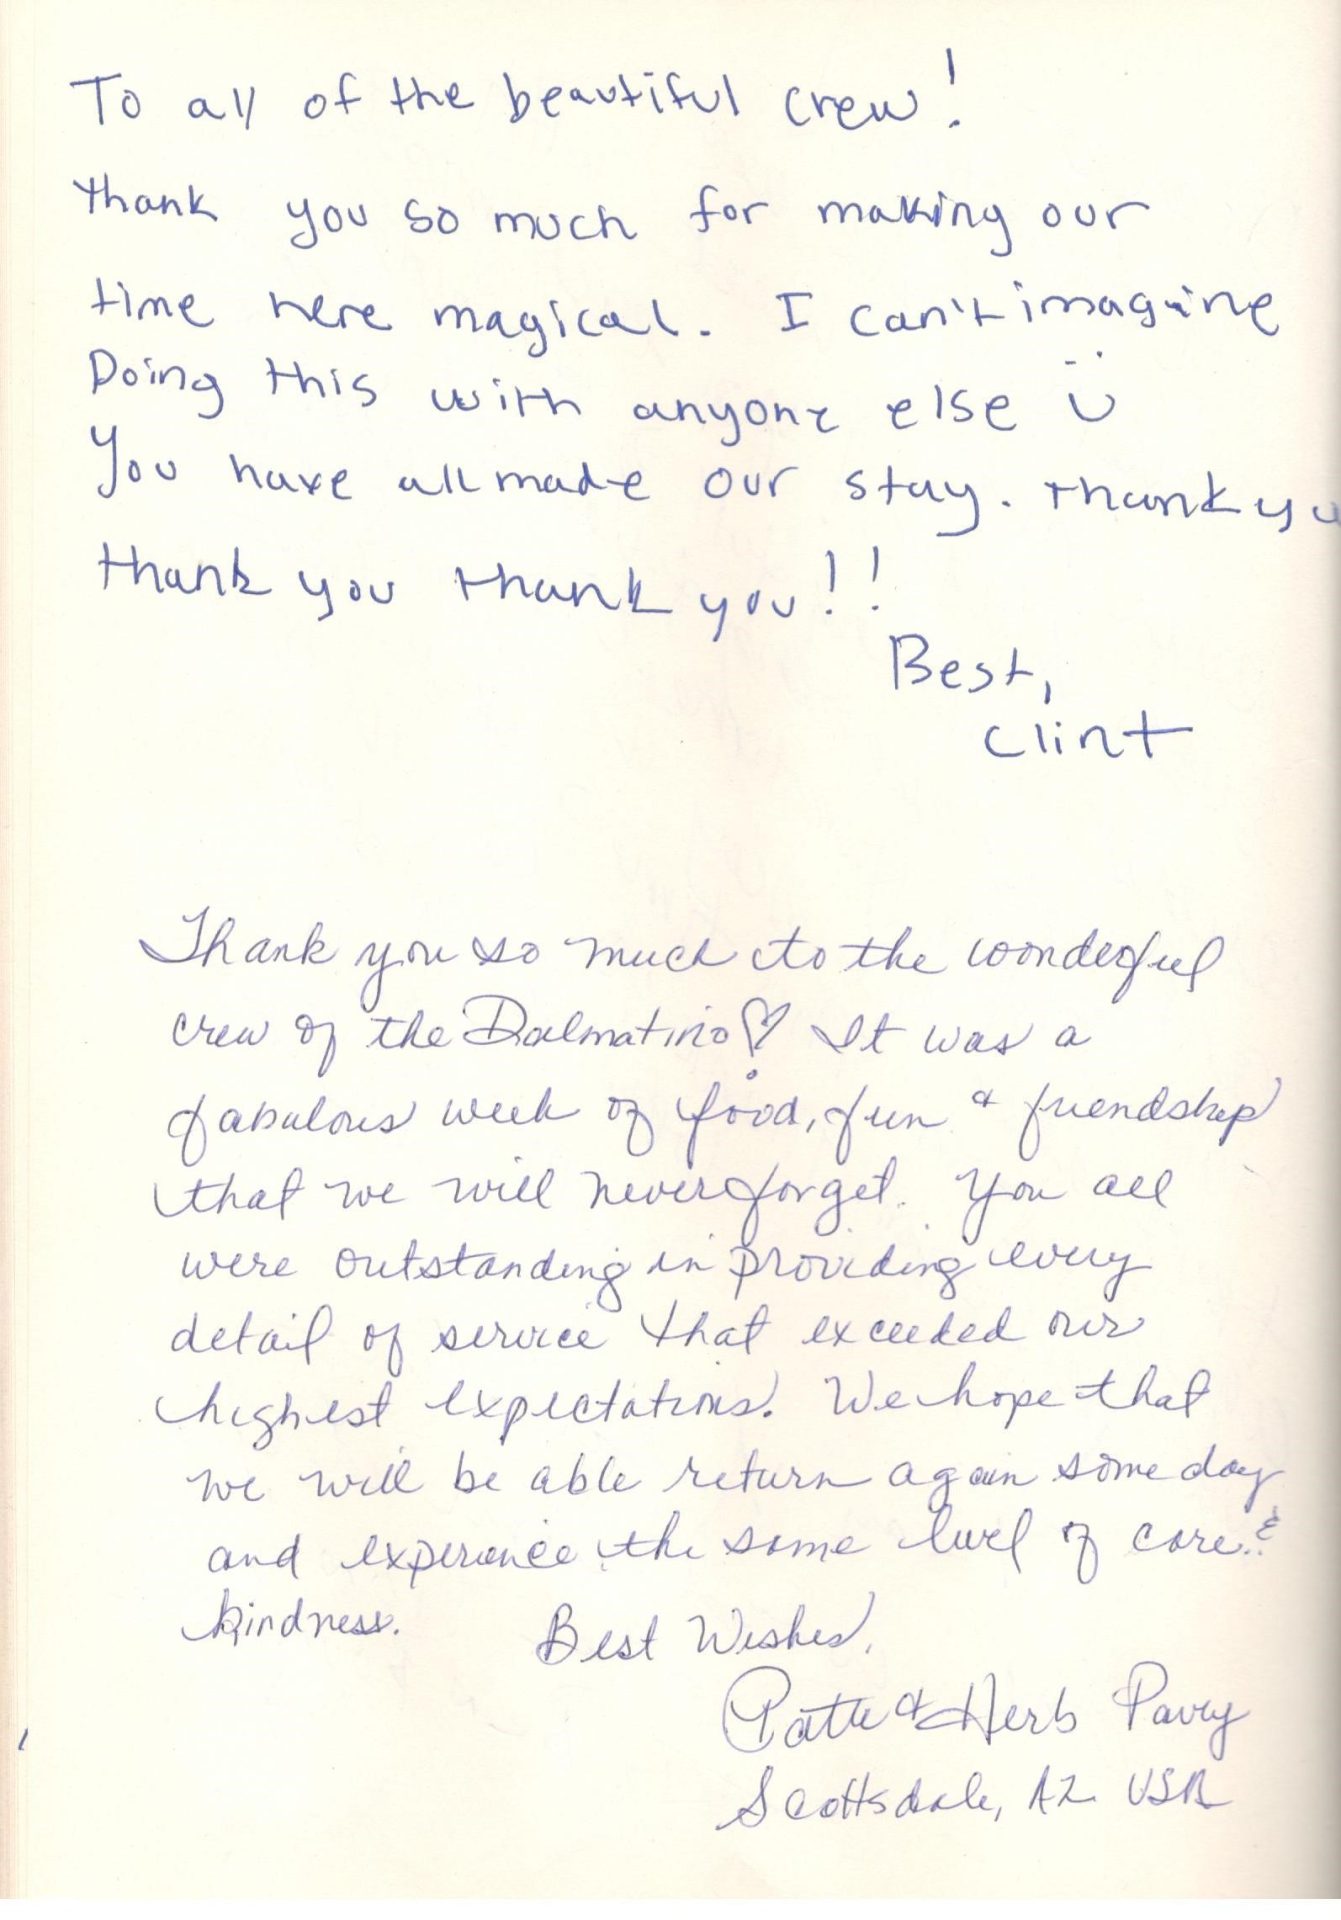 To all of the beautiful crew!
thank you so much for making our
time here magical. I can't imagine
Doing this with anyone else
You have all made our stay. thank you
thank you thank you!!
Best,
Clint
Thank you so much to the wonderful
crew of the Dalmatino It was a
fabulous week of food, fun & friendship
that we will never forget. You all
were outstanding in providing every
detail of service that exceeded our
highest expectations. We hope that
we will be able return again some day
and experience the same level of care &
kindness. Best Wishes,
& Herb Pavey
Scottsdale, AZ USA